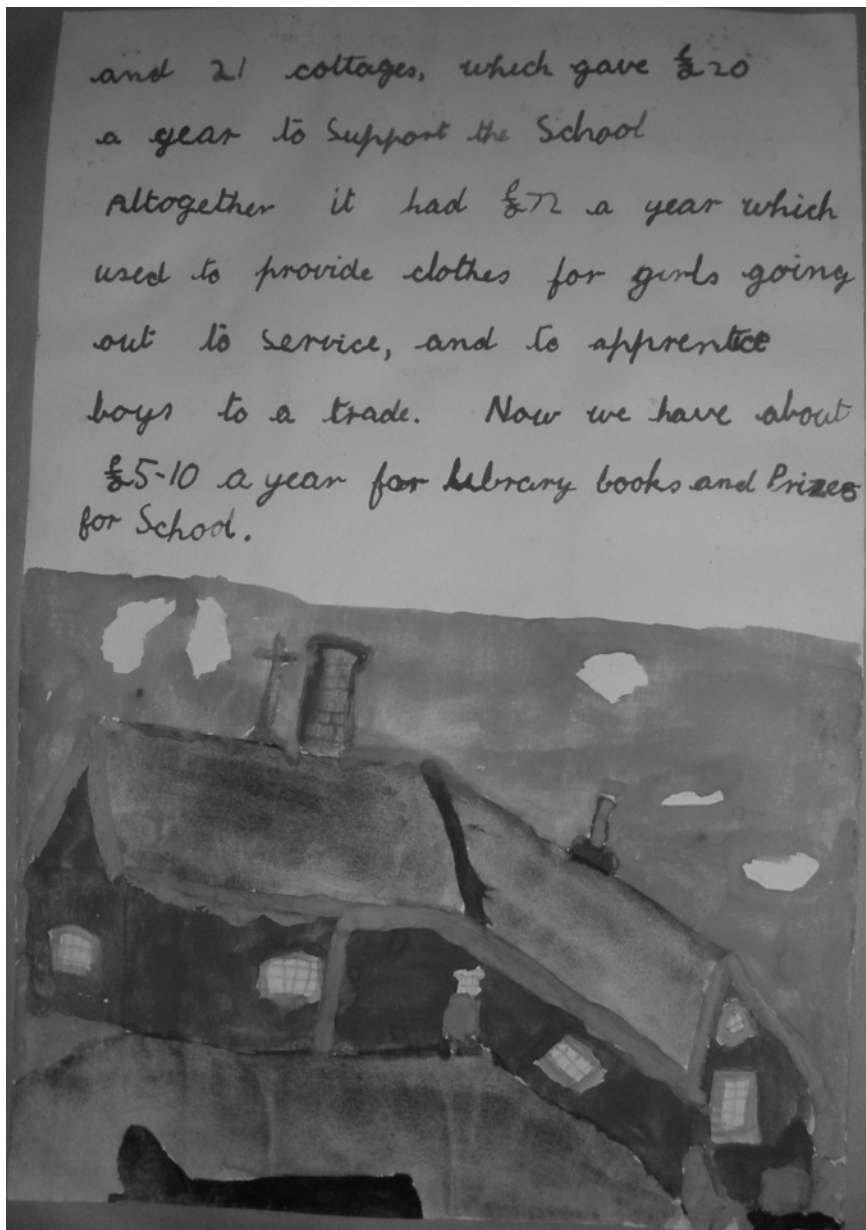 and 21 cottages, which gave £20
a year to Support the School
Altogether it had £72 a year which
used to provide clothes for girls going
out to service, and to apprentice
boys to a trade. Now we have about
£5-10 a year for Library books and Prizes
for School.